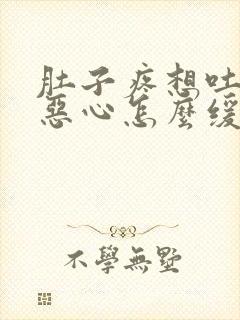 肚子疼想吐
惡心怎麼緩
不學無墅